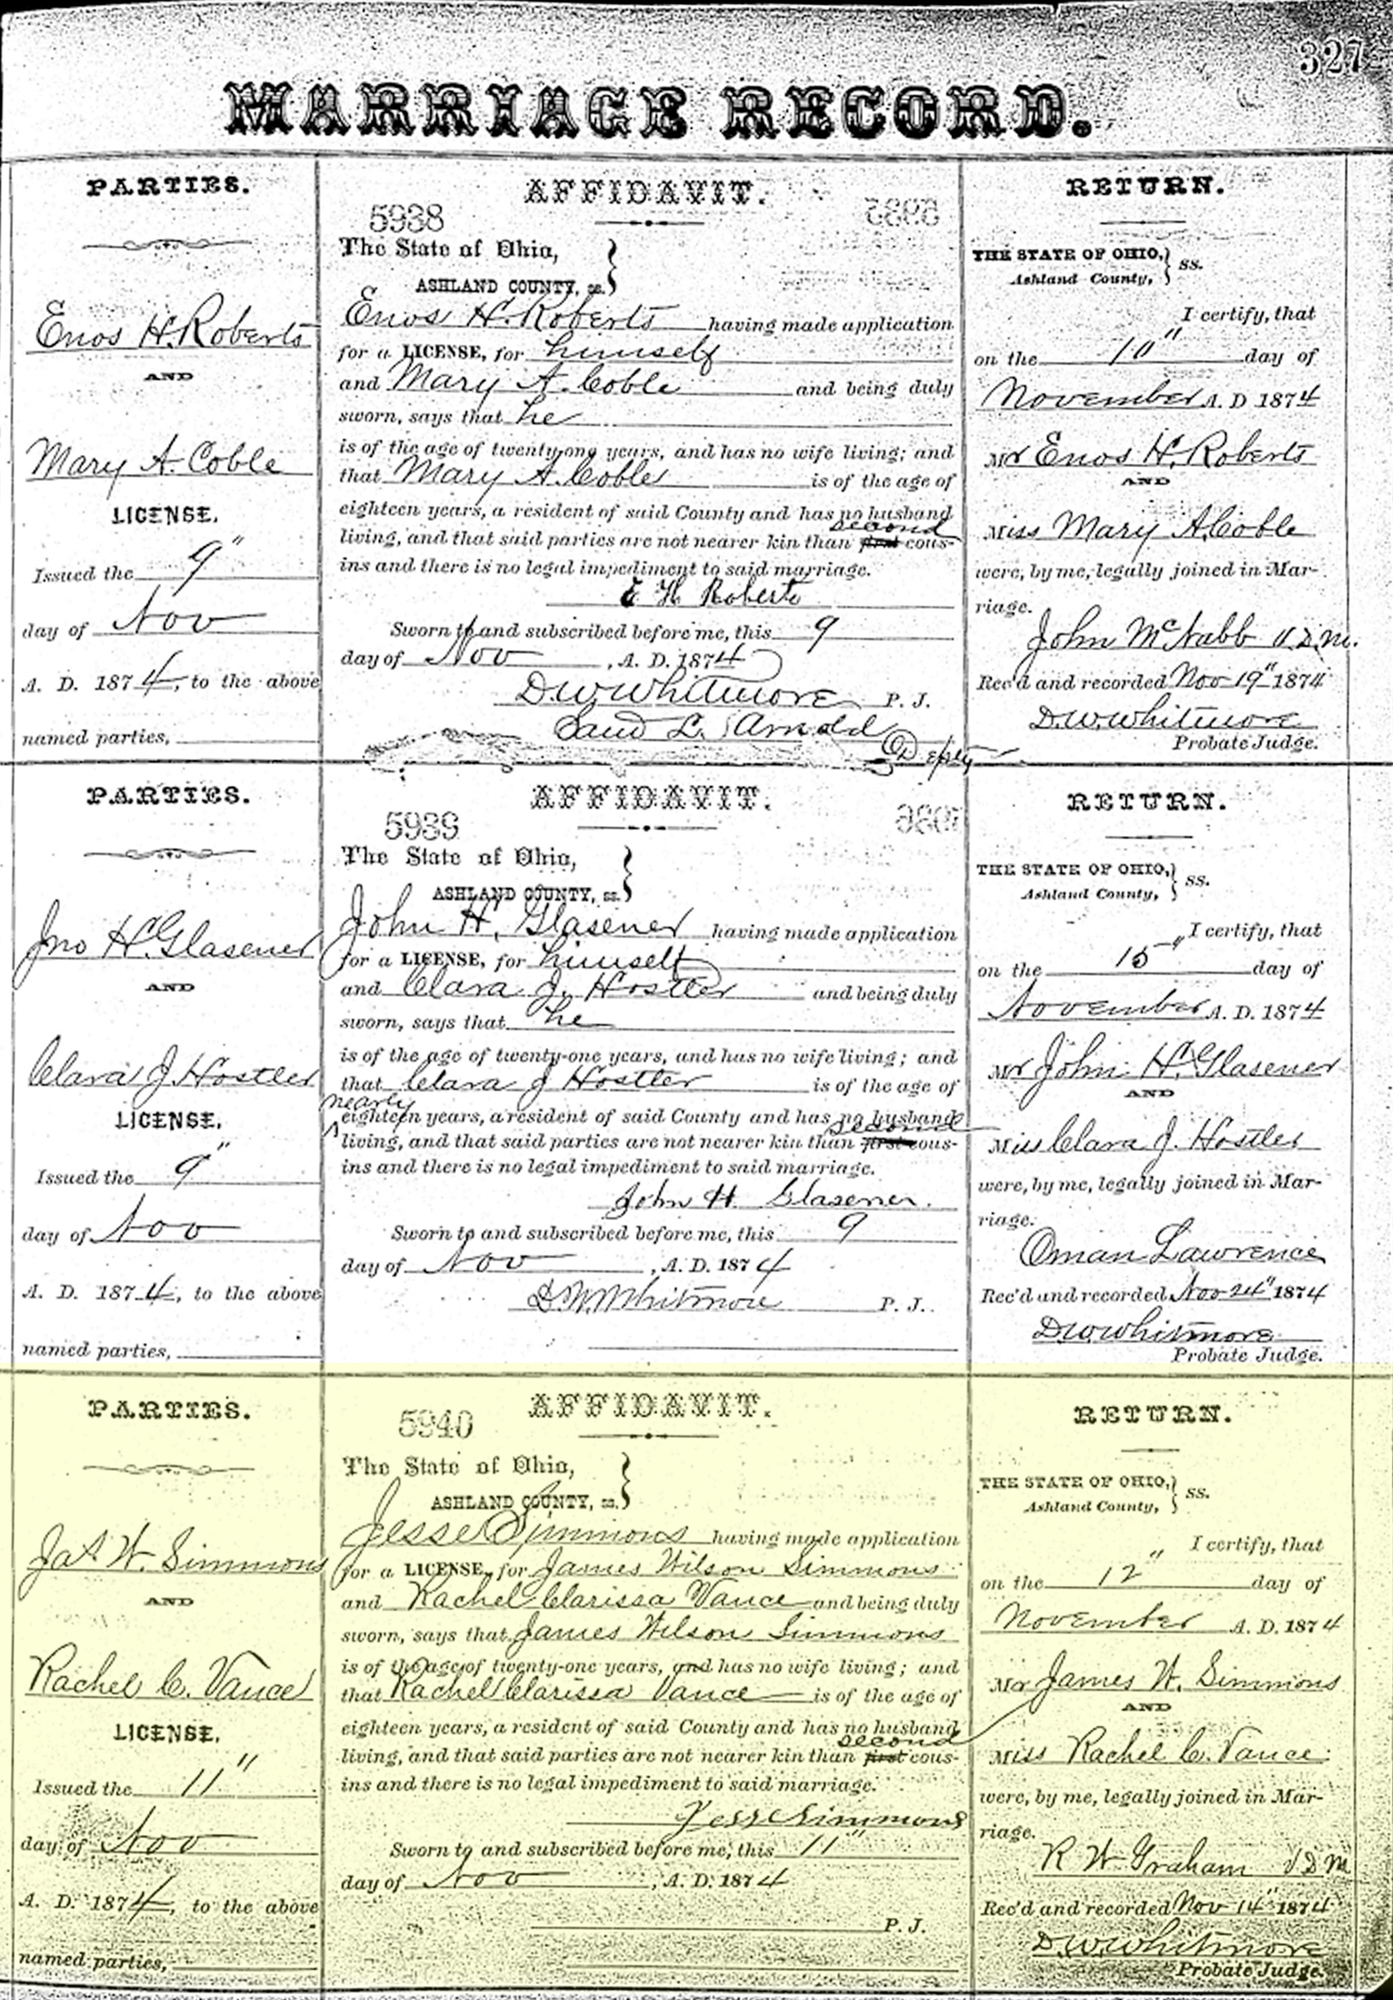 327
MARRIAGE RECORD.
PARTIES.
Enos H. Roberts
AND
Mary A. Coble
LICENSE.
Issued the 9"
day of Nov
A. D. 1874, to the above
named parties,
AFFIDAVIT.
5938
The State of Ohio,
ASHLAND COUNTY, ss.
Enos H. Roberts having made application
for a LICENSE, for himself
and Mary A. Coble and being duly
sworn, says that he
is of the age of twenty-one years, and has no wife living; and
that Mary A. Coble is of the age of
eighteen years, a resident of said County and has no husband
second
living, and that said parties are not nearer kin than first cous-
ins and there is no legal impediment to said marriage.
E H Roberts
Sworn to and subscribed before me, this 9
day of Nov, A. D. 1874
D.W. Whitmore P. J.
L. Arnold
Deputy
RETURN.
THE STATE OF OHIO,
Ashland County, } SS.
I certify, that
on the 10" day of
November A. D 1874
Mr Enos H. Roberts
AND
Miss Mary A. Coble
were, by me, legally joined in Mar-
riage.
John McNabb V.D.M.
Rec'd and recorded Nov 19" 1874
D.W. Whitmore
Probate Judge.
PARTIES.
Jno H. Glasener
AND
Clara J Hostler
LICENSE.
Issued the 9"
day of Nov
A. D. 1874, to the above
named parties,
AFFIDAVIT.
5939
The State of Ohio,
ASHLAND COUNTY, ss.
John H. Glasener having made application
for a LICENSE, for himself
and Clara J. Hostler and being duly
sworn, says that he
is of the age of twenty-one years, and has no wife living; and
that Clara J Hostler is of the age of
nearly
eighteen years, a resident of said County and has no husband
second
living, and that said parties are not nearer kin than first cous-
ins and there is no legal impediment to said marriage.
John H. Glasener.
Sworn to and subscribed before me, this 9
day of Nov, A. D. 1874
D.W. Whitmore P. J.
RETURN.
THE STATE OF OHIO,
Ashland County, } SS.
I certify, that
on the 15" day of
November A. D. 1874
Mr John H. Glasener
AND
Miss Clara J. Hostler
were, by me, legally joined in Mar-
riage.
Oman Lawrence
Rec'd and recorded Nov 24" 1874
D.W. Whitmore
Probate Judge.
PARTIES.
Jas W. Simmons
AND
Rachel C. Vance
LICENSE.
Issued the 11"
day of Nov
A. D. 1874, to the above
named parties,
AFFIDAVIT.
5940
The State of Ohio,
ASHLAND COUNTY, ss.
Jesse Simmons having made application
for a LICENSE, for James Wilson Simmons
and Rachel Clarissa Vance and being duly
sworn, says that James Wilson Simmons
is of the age of twenty-one years, and has no wife living; and
that Rachel Clarissa Vance is of the age of
eighteen years, a resident of said County and has no husband
second
living, and that said parties are not nearer kin than first cous-
ins and there is no legal impediment to said marriage.
Jesse Simmons
Sworn to and subscribed before me, this 11"
day of Nov, A. D. 1874
P. J.
RETURN.
THE STATE OF OHIO,
Ashland County, } SS.
I certify, that
on the 12" day of
November A. D. 1874
Mr James W. Simmons
AND
Miss Rachel C. Vance
were, by me, legally joined in Mar-
riage.
R W Graham V D M
Rec'd and recorded Nov 14" 1874
D.W. Whitmore
Probate Judge.